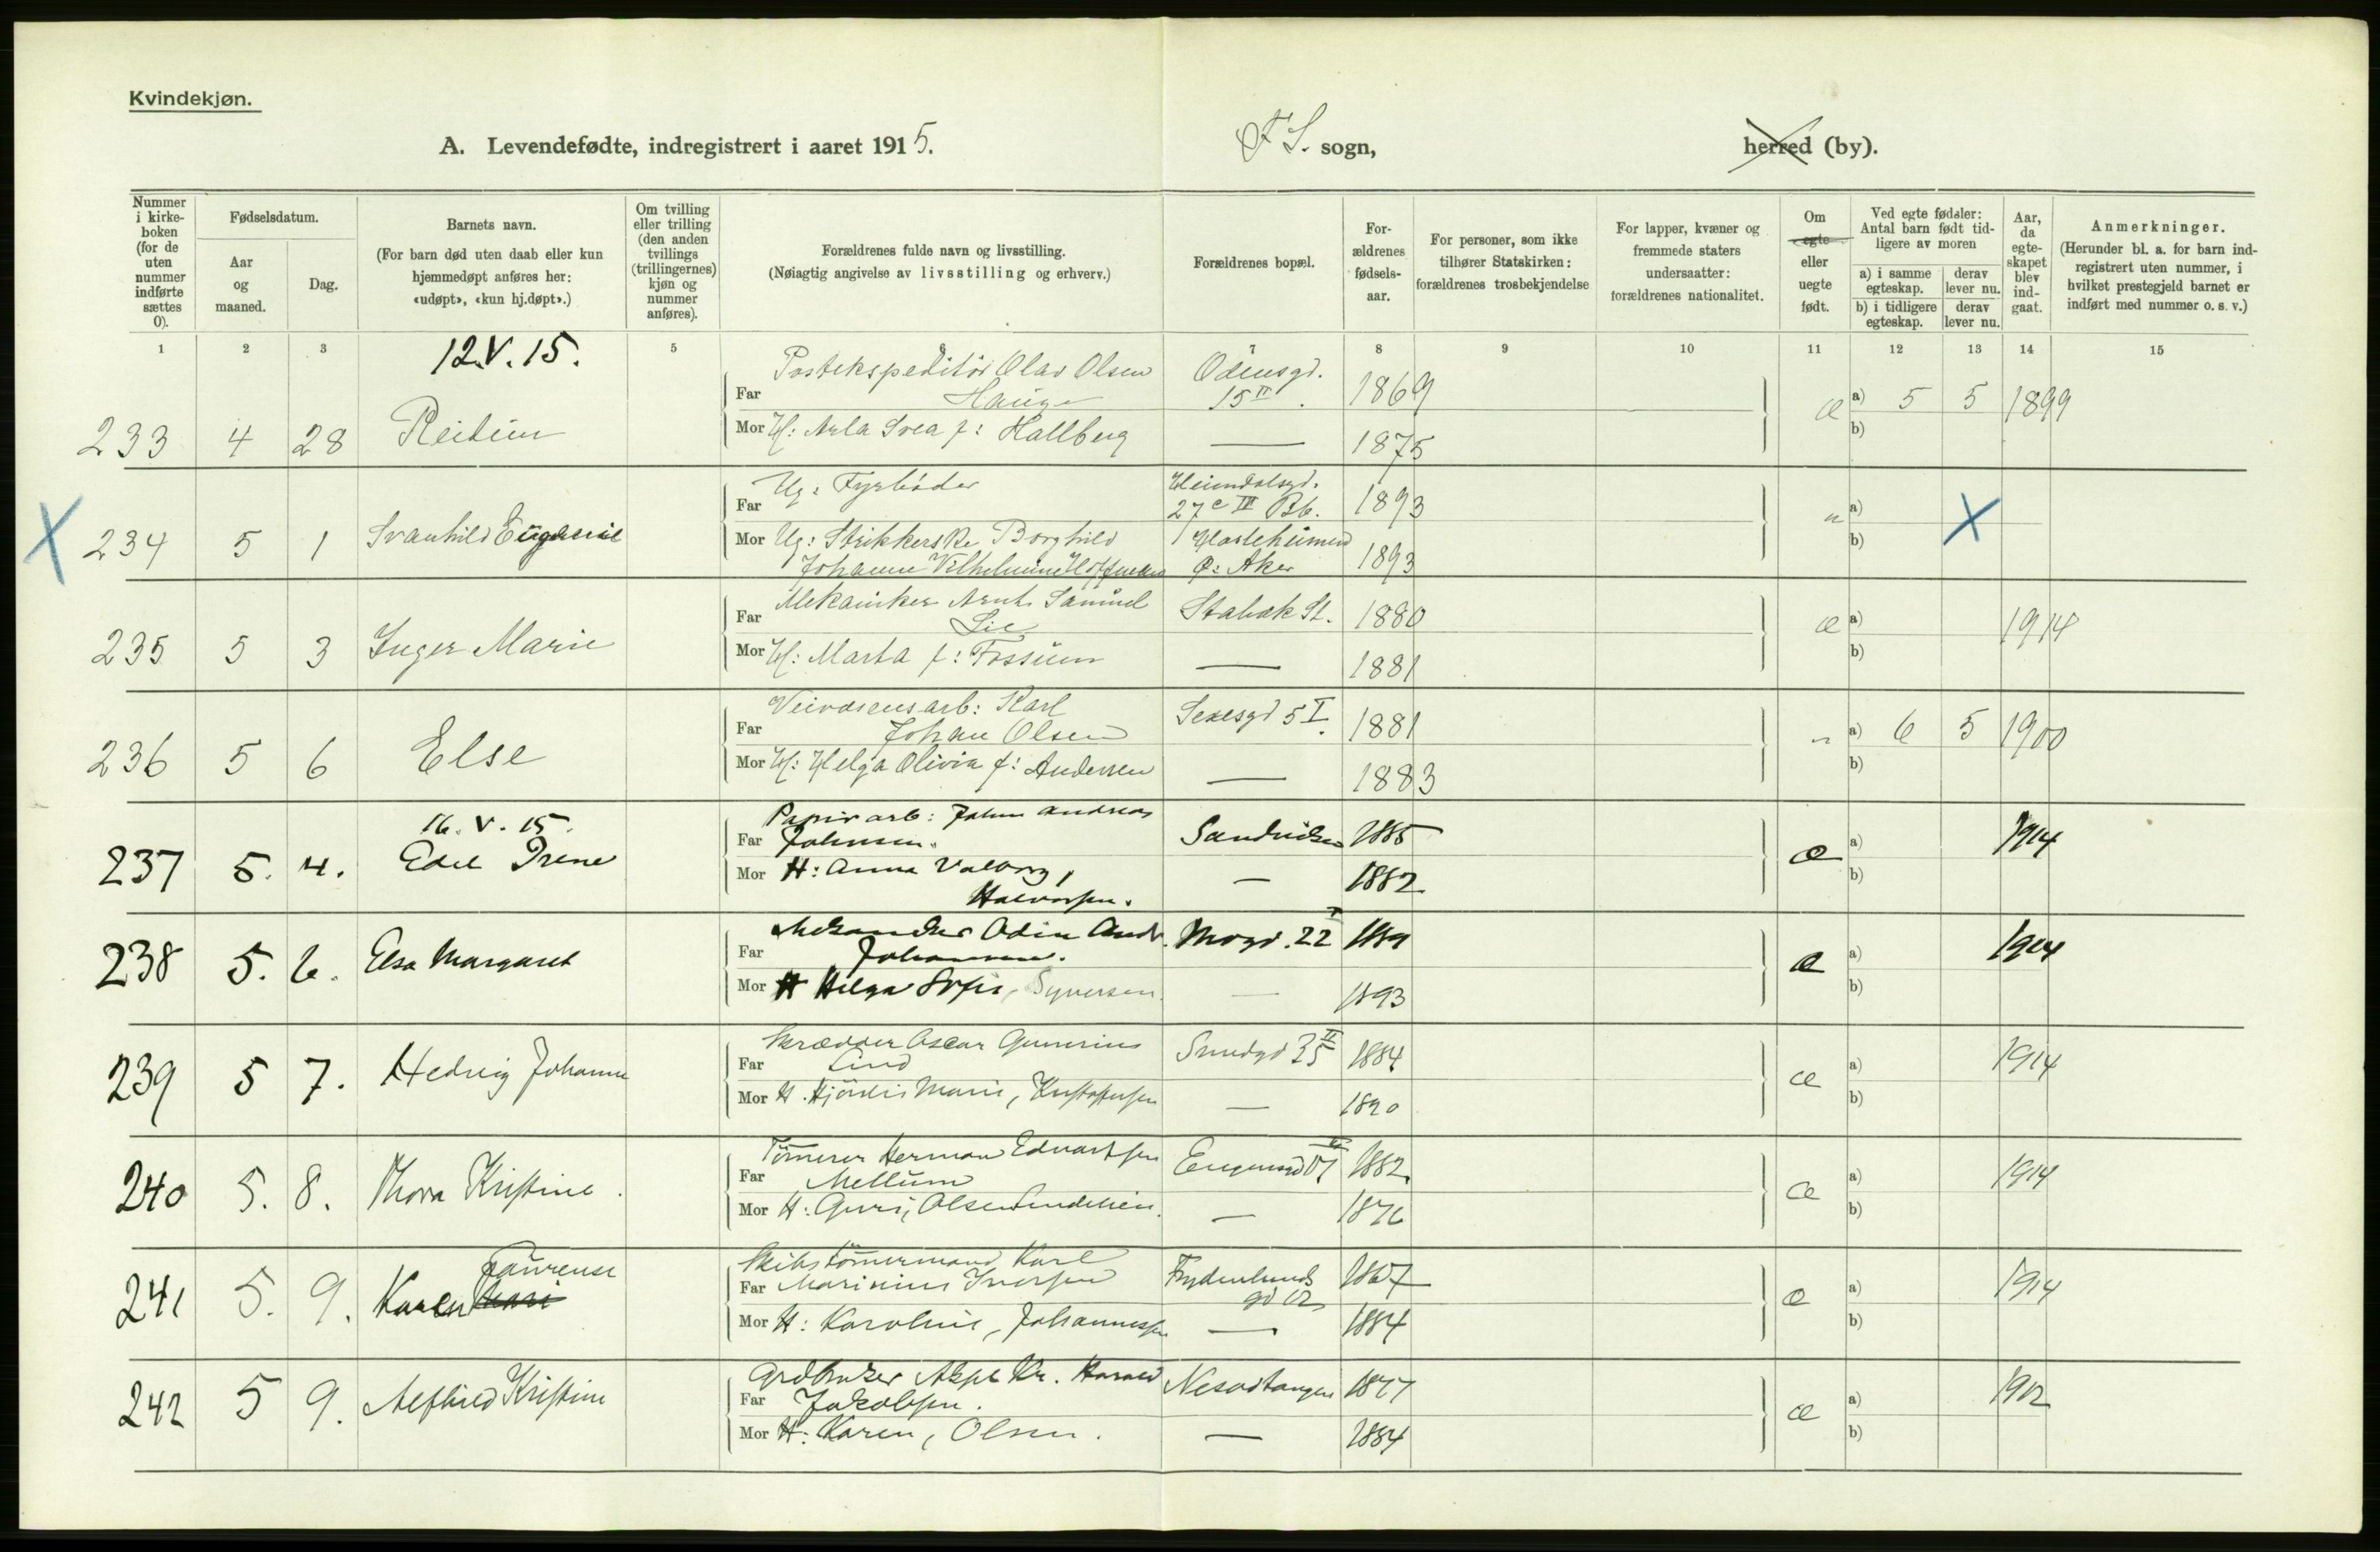 Kvindekjøn.
A. Levendefødte, indregistrert i aaret 1915.
F S. sogn,
herred (by).
Nummer i kirkeboken (for de uten nummer indførte sættes 0).
Fødselsdatum.
Aar og maaned.
Dag.
Barnets navn.
(For barn død uten daab eller kun hjemmedøpt anføres her: «udøpt», «kun hj.døpt».)
Om tvilling eller trilling (den anden tvillings (trillingernes) kjøn og nummer anføres).
Forældrenes fulde navn og livsstilling.
(Nøiagtig angivelse av livsstilling og erhverv.)
Forældrenes bopæl.
Forældrenes fødselsaar.
For personer, som ikke tilhører Statskirken: forældrenes trosbekjendelse
For lapper, kvæner og fremmede staters undersaatter: forældrenes nationalitet.
Om egte eller uegte født.
Ved egte fødsler: Antal barn født tidligere av moren
a) i samme egteskap.
derav lever nu.
b) i tidligere egteskap.
derav lever nu.
Aar, da egteskapet blev indgaat.
Anmerkninger.
(Herunder bl. a. for barn indregistrert uten nummer, i hvilket prestegjeld barnet er indført med nummer o. s. v.)
1 2 3 5 6 7 8 9 10 11 12 13 14 15
12.V.15.
233 4 28 Reidun
Far Postekspeditør Olav Olsen Hauge Odensgd. 15 II. 1869 æ a) 5 5 1899
Mor H: Arla Svea f: Hallberg — 1875 b)
X 234 5 1 Svanhild Eugenie
Far Ug: Fyrbøder Heimdalsgd. 27 c III Bb. 1893 u a) X
Mor Ug: Strikkerske Borghild Johanne Vilhelmine Hoffmann Ø: Aker 1893 b)
235 5 3 Inger Marie
Far Mekaniker Arnt Samuel Lie Stabæk St. 1880 æ a) 1914
Mor H: Marta f: Fossum — 1881 b)
236 5 6 Else
Far Veivæsensarb: Karl Johan Olsen 5 I. 1881 " a) 6 5 1900
Mor H: Helga Olivia f: Andersen — 1883 b)
16.V.15.
237 5. 4. Edel Irene
Far Papirarb: Johan Andreas Johnsen. Sandviken 1885 æ a) 1914
Mor H: Anna Valborg, Halvorsen. — 1882 b)
238 5. 6. Elsa Margaret
Far Odin Andr. Johansen. Mogd. 22 I 1889 æ a) 1914
Mor H Helga Sofie, Syversen. — 1893 b)
239 5 7. Hedvig Johanne
Far Skrædder Oscar Gunerius Lind Sundgd 35 II 1884 æ a) 1914
Mor H. Hjørdis Marie, Kristoffersen — 1890 b)
240 5. 8. Thora Kristine.
Far Tømmerm Herman Edvardsen Mellum 1882 æ a) 1914
Mor H: Guri, Olsen — 1876 b)
241 5. 9. Karen Laurense Mari
Far Skibstømmermand Karl Marinius Iversen Frydenlunds gd 12 1867 æ a) 1914
Mor H: Karoline, Johannessen — 1884 b)
242 5 9. Alfhild Kristine
Far Grdbruker Kr. Harald Jakobsen. Nesodtangen 1877 æ a) 1902
Mor H: Karen, Olsen. — 1884 b)